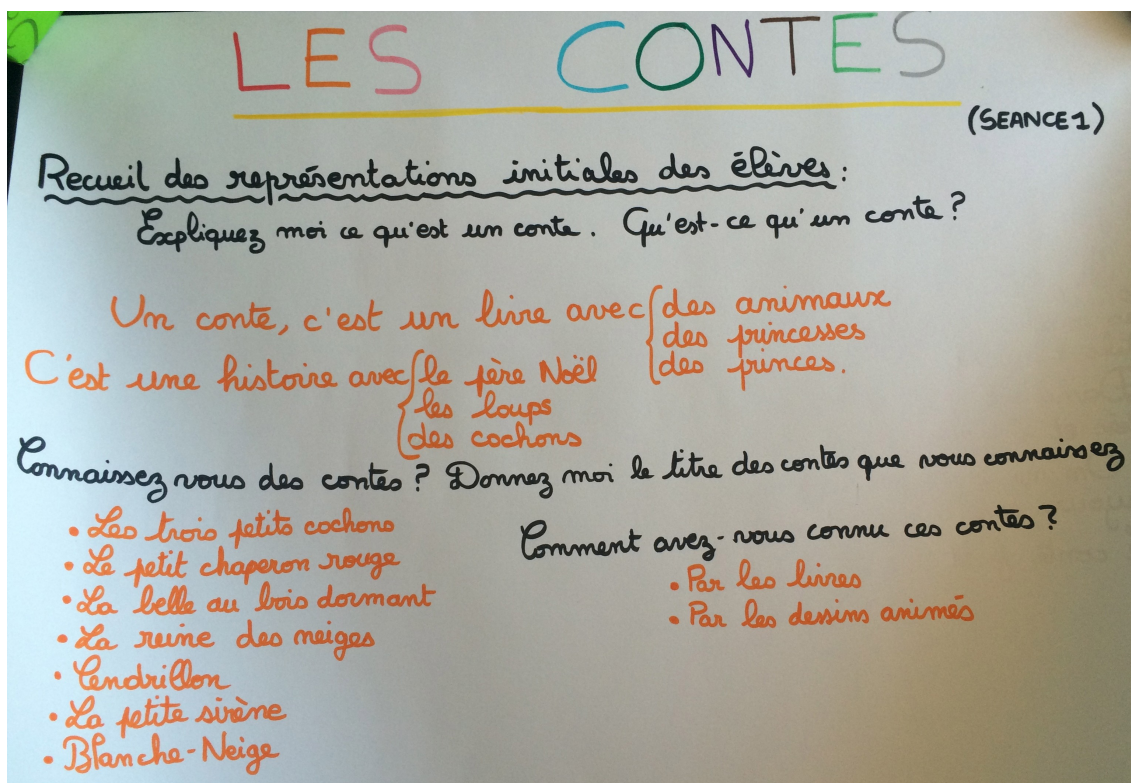 LES CONTES
(SEANCE 1)
Recueil des représentations initiales des élèves :
Expliquez moi ce qu'est un conte. Qu'est-ce qu'un conte ?
Un conte, c'est un livre avec des animaux
des princesses
des princes.
C'est une histoire avec le père Noël
les loups
des cochons
Connaissez vous des contes ? Donnez moi le titre des contes que vous connaissez
• Les trois petits cochons
• Le petit chaperon rouge
• La belle au bois dormant
• La reine des neiges
• Cendrillon
• La petite sirène
• Blanche-Neige
Comment avez-vous connu ces contes ?
• Par les livres
• Par les dessins animés